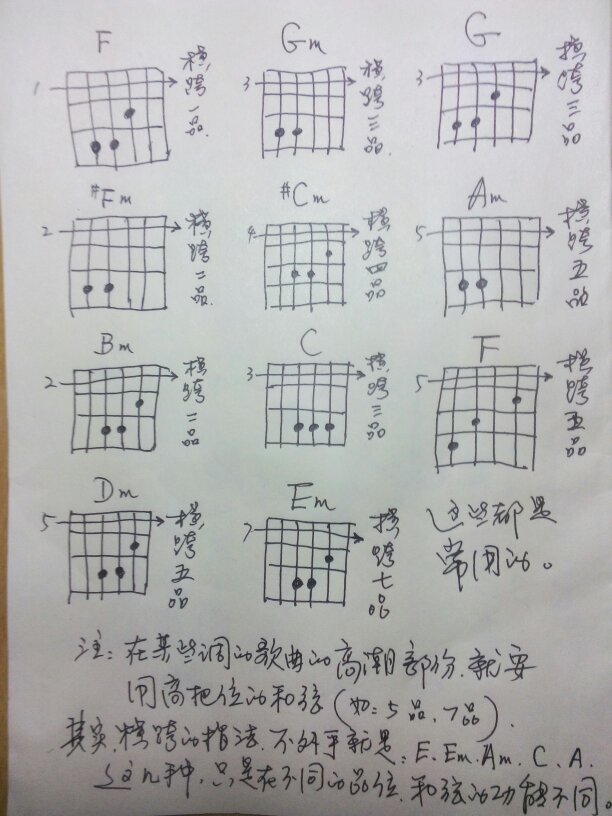 F Gm G
1 横跨一品. 3 横跨三品. 3 横跨三品
#Fm #Cm Am
2 横跨二品. 4 横跨四品 5 横跨五品
Bm C F
2 横跨二品 3 横跨三品 5 横跨五品
Dm Em
5 横跨五品 7 横跨七品
这些都是
常用的。
注: 在某些调的歌曲的高潮部份, 就要
用高把位的和弦 (如: 5品、7品).
其实, 横跨的指法, 不外乎就是: E. Em. Am. C. A.
这几种, 只是在不同的品位, 和弦的功能不同。